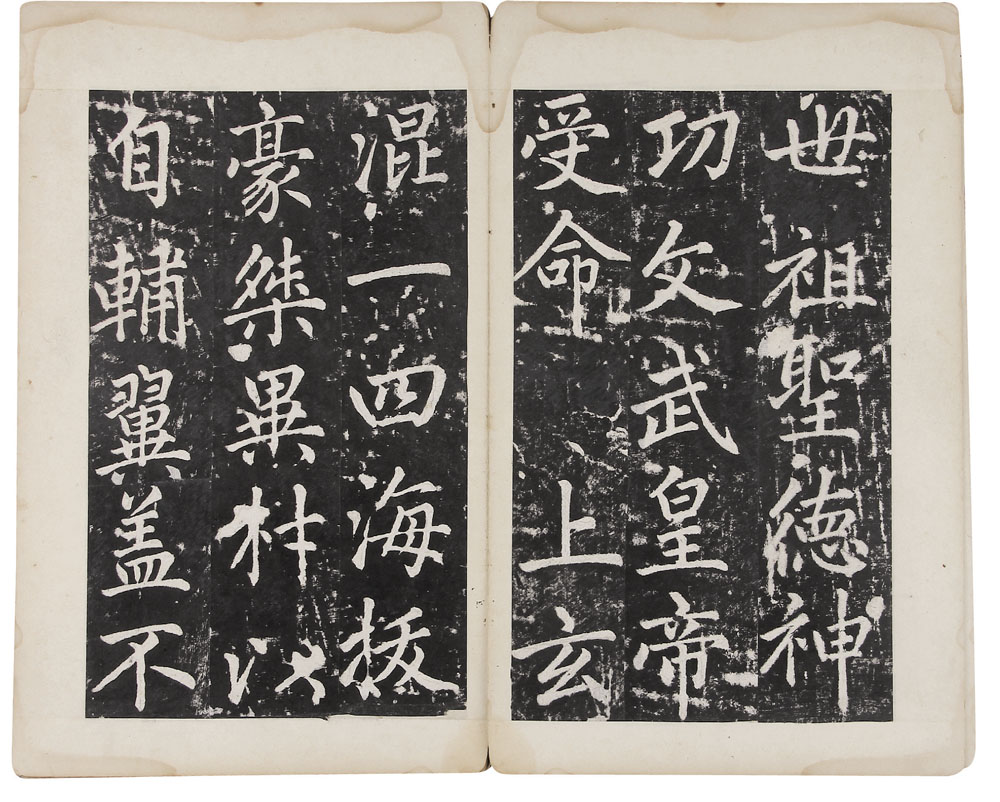 世祖聖德神
功文武皇帝
受命 上玄
混一四海拔
豪桀異材以
自輔翼盖不